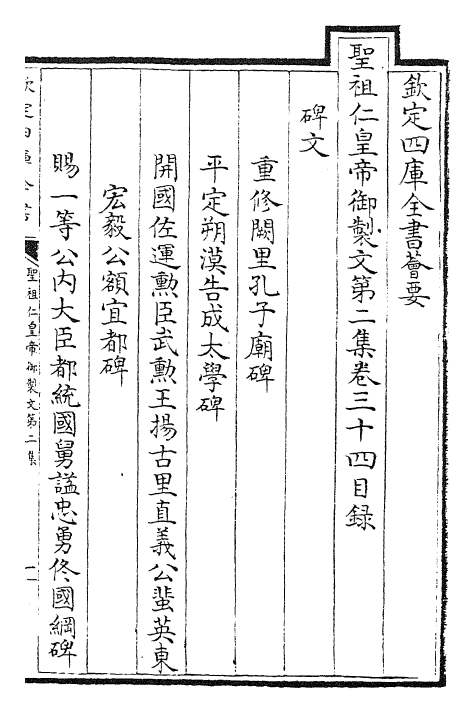 欽定四庫全書薈要
聖祖仁皇帝御製文第二集卷三十四目録
碑文
重修闕里孔子廟碑
平定朔漠告成太學碑
開國佐運勲臣武勲王揚古里直義公蜚英東
宏毅公額宜都碑
賜一等公内大臣都統國舅謚忠勇佟國綱碑
欽定四庫全書
聖祖仁皇帝御製文第二集
一